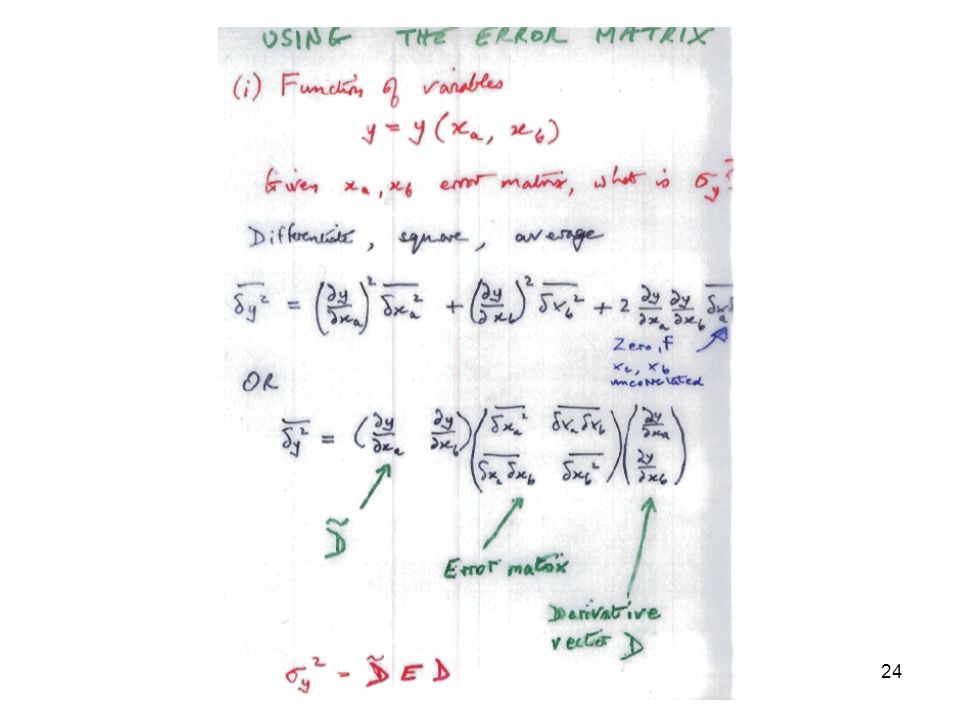 USING THE ERROR MATRIX
(i) Function of variables
y = y(xₐ, x_b)
Given xₐ, x_b error matrix, what is σ_y?
Differentiate, square, average
\overline{δy²} = (∂y/∂xₐ)² \overline{δxₐ²} + (∂y/∂x_b)² \overline{δx_b²} + 2 ∂y/∂xₐ ∂y/∂x_b \overline{δxₐδ
Zero, if
xₐ, x_b
uncorrelated
OR
\overline{δy²} = (∂y/∂xₐ ∂y/∂x_b) ( \overline{δxₐ²} \overline{δxₐ δx_b} ) ( ∂y/∂xₐ )
( \overline{δxₐ δx_b} \overline{δx_b²} ) ( ∂y/∂x_b )
D̃
Error matrix
Derivative
vector D
σ_y² = D̃ E D
24